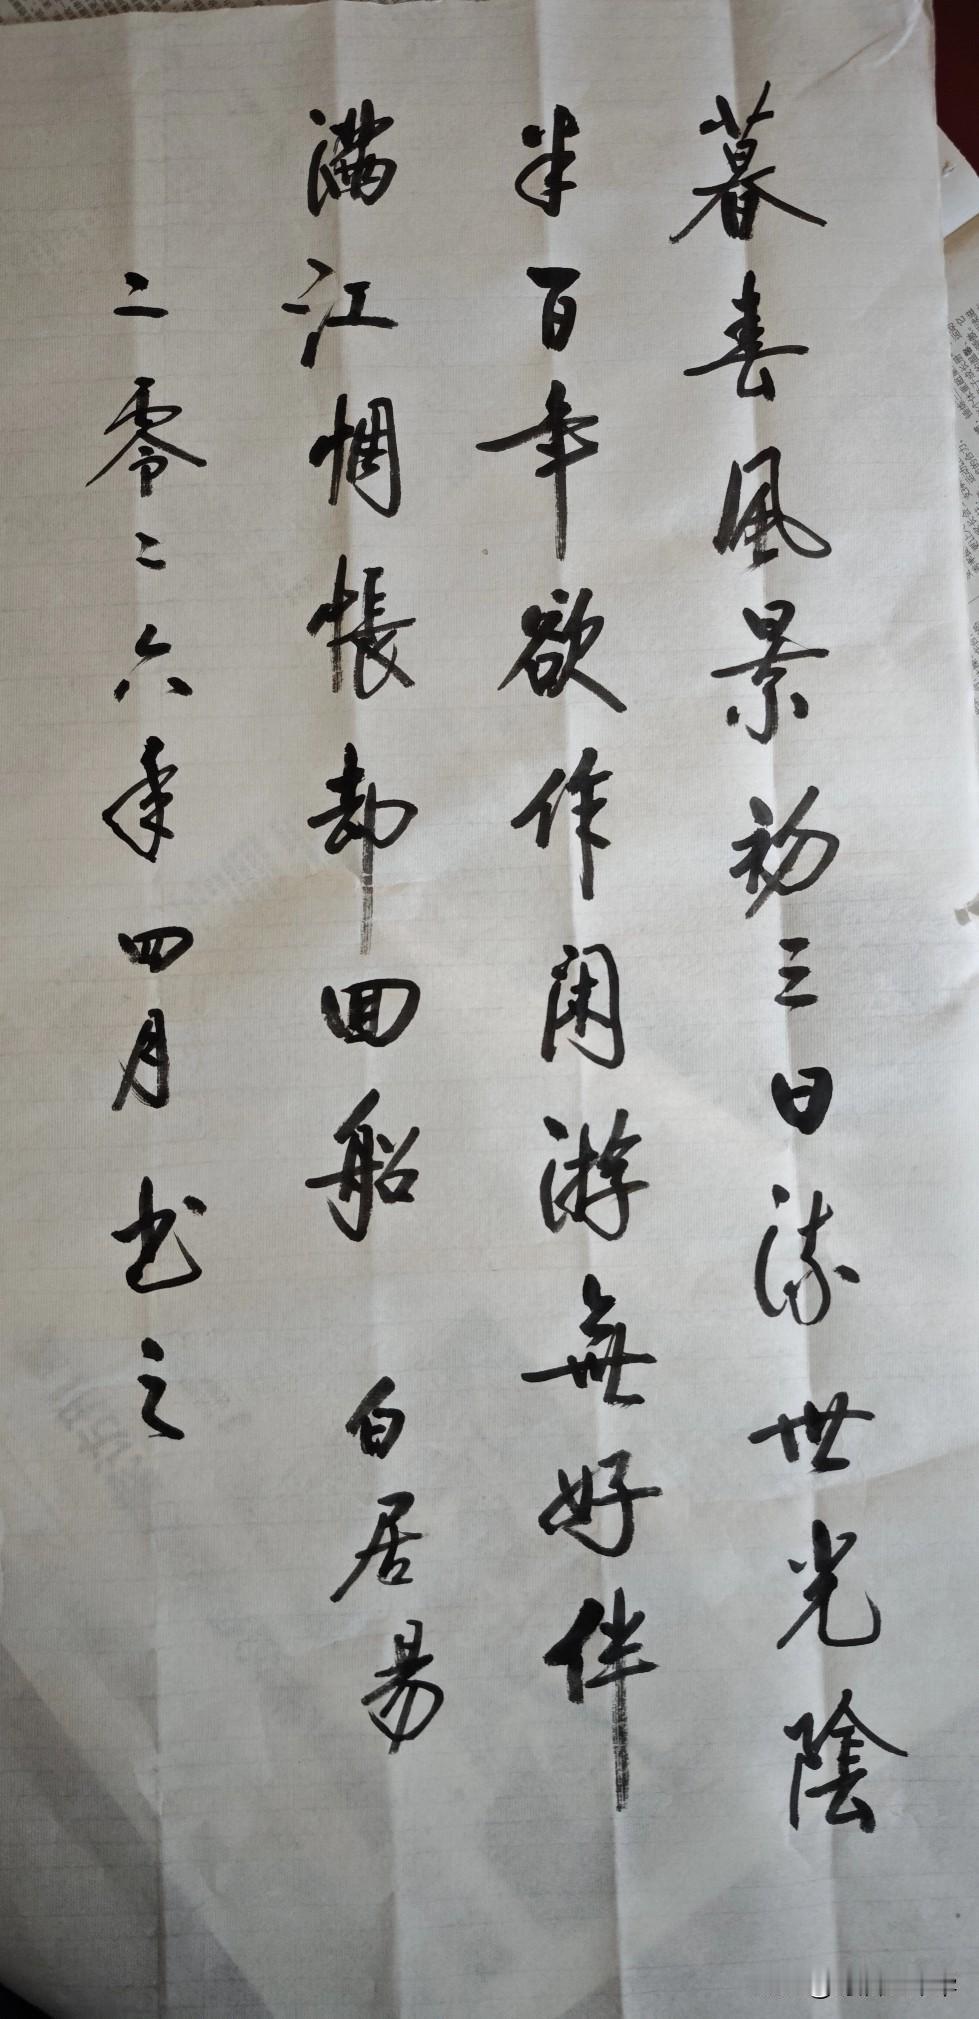 暮春風景初三日流世光陰
半百年欲作闲游無好伴
满江惆悵却回船 白居易
二零二六年四月书之